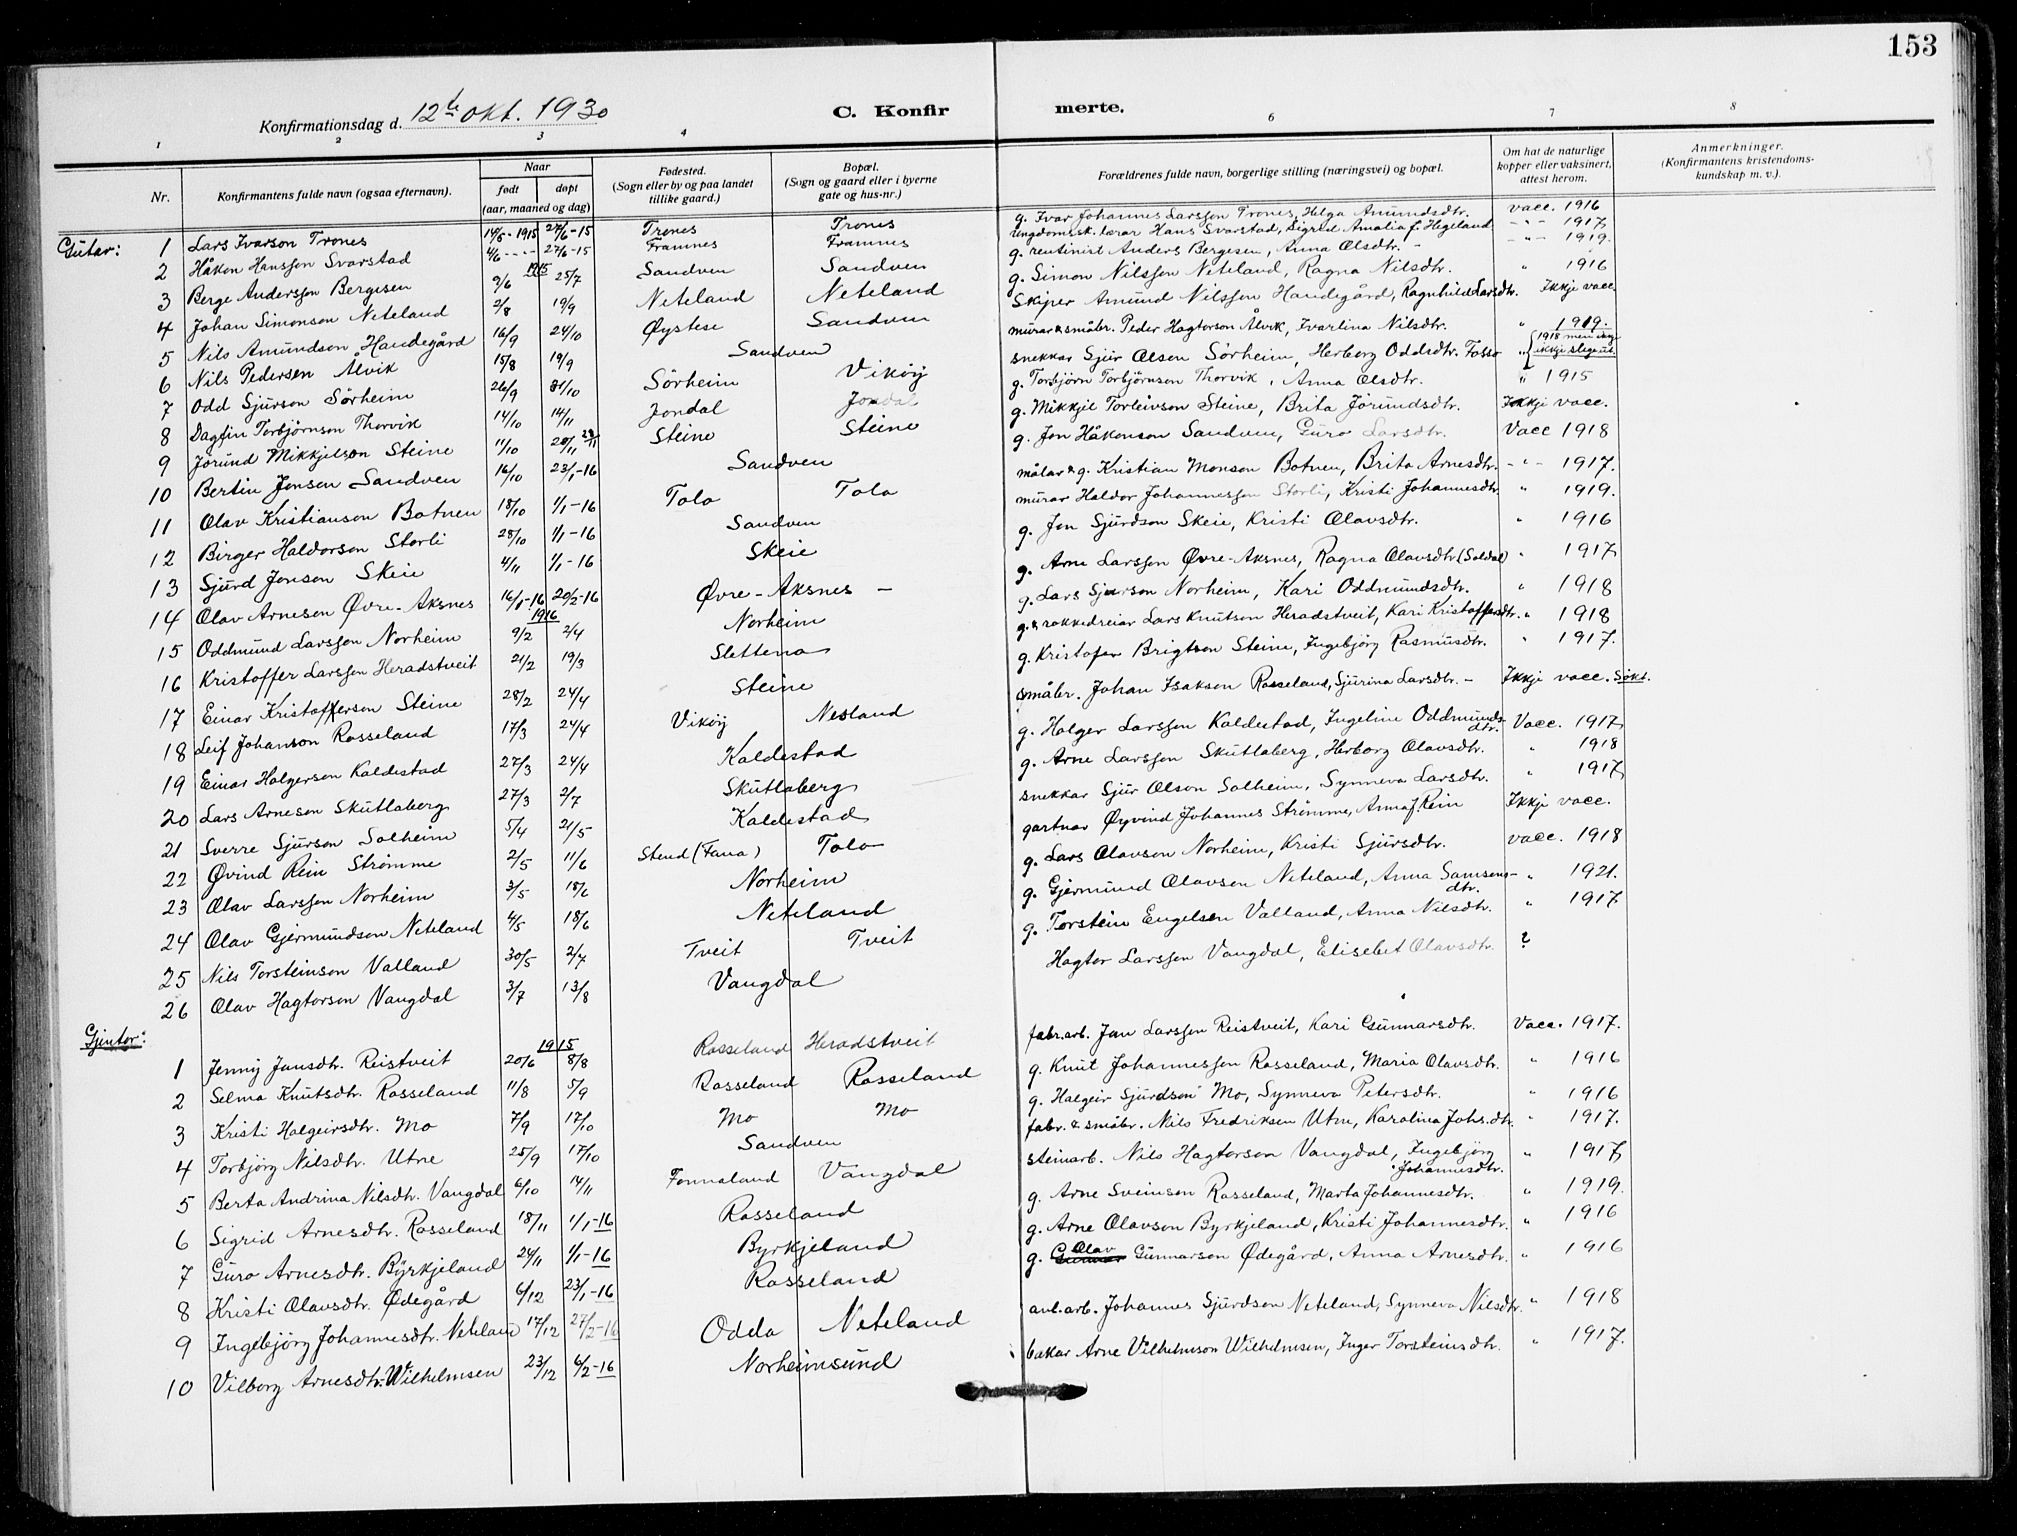 153
Konfirmationsdag d. 12te okt. 1930
C. Konfir merte.
1 2 3 4 6 7 8
Nr. Konfirmantens fulde navn (ogsaa efternavn). Naar født døpt (aar, maaned og dag) Fødested. (Sogn eller by og paa landet tillike gaard.) Bopæl. (Sogn og gaard eller i byerne gate og hus-nr.) Forældrenes fulde navn, borgerlige stilling (næringsvei) og bopæl. Om hat de naturlige kopper eller vaksinert, attest herom. Anmerkninger. (Konfirmantens kristendoms-kundskap m. v.).
Gutar: 1 Lars Ivarson Trones 14/5-1915 27/6-15 Trones Trones g. Ivar Johannes Larsson Trones, Helga Amundsdtr. vacc. 1916
2 Håkon Hansson Svarstad 4/6 - - - 27/6-15 Framnes Framnes ungdomssk. lærar Hans Svarstad, Sigrid Amalia f. Hegeland - " - 1917
1915
3 Berge Andersson Bergesen 9/6 25/7 Sandven Sandven g. rentinist Anders Bergesen, Anna Olsdtr. - - " - 1919.
4 Johan Simonson Neteland 2/8 19/9 Neteland Neteland g. Simon Nilsson Neteland, Ragna Nilsdtr. " 1916
5 Nils Amundson Handegård 16/9 24/10 Øystese Sandven Skiper Amund Nilsson Handegård, Ragnhild Larsdtr. Ikkje vacc.
6 Nils Pedersen Ålvik 15/8 19/9 Sandven murar & småbr. Peder Hagtorson Ålvik, Ivarlina Nilsdtr. " 1919.
7 Odd Sjurson Sörheim 26/9 31/10 Sörheim Vikøy snekkar Sjur Olson Sörheim, Herborg Oddsdtr. Fosso " {1918 men ikkje slege ut.
8 Dagfin Torbjörnson Thorvik 14/10 14/11 Jondal Jondal g. Torbjörn Torbjörnson Thorvik, Anna Olsdtr. " 1915
9 Jörund Mikkjelson Steine 11/10 28/11 Steine Steine g. Mikkjel Torleivson Steine, Brita Jörundsdtr. Ikkje vacc.
10 Bertin Jonson Sandven 16/10 23/1-16 Sandven g. Jon Håkonson Sandven, Guro Larsdtr. Vacc 1918
11 Olav Kristianson Botnen 18/10 1/1-16 Tolo Tolo målar & g. Kristian Monson Botnen, Brita Arnesdtr. - " - 1917.
12 Birger Haldorson Storli 28/10 1/1-16 Sandven murar Haldor Johannesson Storli, Kristi Johannesdtr. " 1919.
13 Sjurd Jonson Skeie 4/11 1/1-16 Skeie g. Jon Sjurdson Skeie, Kristi Olavsdtr. " 1916
14 Olav Arneson Øvre-Aksnes 16/1-16 20/2-16 Øvre-Aksnes - g. Arne Larsson Øvre-Aksnes, Ragna Olavsdtr (Soldal) " 1917
1916
15 Oddmund Larsson Norheim 9/2 2/4 Norheim g. Lars Sjurson Norheim, Kari Oddmundsdtr. " 1918
16 Kristoffer Larsson Heradstveit 21/2 19/3 Slettena g. & rokkedreiar Lars Knutson Heradstveit, Kari Kristoffersdtr. " 1918
17 Einar Kristofferson Steine 28/2 24/4 Steine g. Kristofer Brigtson Steine, Ingebjörg Rasmusdtr. " 1917.
18 Leif Johanson Rosseland 17/3 24/4 Vikøy Nesland småbr. Johan Isakson Rosseland, Sjurina Larsdtr. - Ikkje vacc. Søkt.
19 Einar Holgerson Kaldestad 27/3 24/4 Kaldestad g. Holger Larsson Kaldestad, Ingeline Oddmundsdtr. Vacc. 1917
20 Lars Arneson Skutlaberg 27/3 2/7 Skutlaberg g. Arne Larsson Skutlaberg, Herborg Olavsdtr. " 1918
21 Sverre Sjurson Solheim 5/4 21/5 Kaldestad snekkar Sjur Olson Solheim, Synneva Larsdtr. " 1917
22 Øvind Rein Strømme 2/5 11/6 Stend (Fana) Tolo gartnar Øyvind Johannes Strømme, Anna f. Rein Ikkje vacc.
23 Olav Larsson Norheim 3/5 18/6 Norheim g. Lars Olavson Norheim, Kristi Sjursdtr. vacc. 1918
24 Olav Gjermundson Neteland 4/5 18/6 Neteland g. Gjermund Olavson Neteland, Anna Samsonsdtr. " 1921.
25 Nils Torsteinson Valland 30/5 2/7 Tveit Tveit g. Torstein Engelsen Valland, Anna Nilsdtr. " 1917
26 Olav Hagtorson Vangdal 3/7 13/8 Vangdal Hagtor Larsson Vangdal, Elisebet Olavsdtr. ?
Gjentor:
1915
1 Jenny Jansdtr. Reistveit 20/6 8/8 Rosseland Heradstveit fabr.arb. Jan Larssen Reistveit, Kari Gunnarsdtr. Vacc. 1917.
2 Selma Knutsdtr. Rosseland 11/8 5/9 Rosseland Rosseland g. Knut Johannesson Rosseland, Maria Olavsdtr. " 1916
3 Kristi Halgeirsdtr. Mo 7/9 17/10 Mo Mo g. Halgeir Sjurdson Mo, Synneva Petersdtr. " 1916
4 Torbjörg Nilsdtr. Utne 25/9 17/10 Sandven fabr. & småbr. Nils Fredriksen Utne, Karolina Johs.dtr. " 1917.
5 Berta Andrina Nilsdtr. Vangdal 6/10 14/11 Fonnaland Vangdal steinarb. Nils Hagtorson Vangdal, Ingebjörg Johannesdtr. " 1917
6 Sigrid Arnesdtr. Rosseland 18/11 1/1-16 Rosseland g. Arne Sveinson Rosseland, Marta Johannesdtr. " 1919.
7 Guro Arnesdtr. Byrkjeland 24/11 1/1-16 Byrkjeland g. Arne Olavson Byrkjeland, Kristi Johannesdtr. " 1916
8 Kristi Olavsdtr. Ødegård 6/12 23/1-16 Rosseland g. Olav Gunnarson Ødegård, Anna Arnesdtr. " 1916
9 Ingebjörg Johannesdtr. Neteland 17/12 27/2-16 Odda Neteland anl.arb. Johannes Sjurdson Neteland, Synneva Nilsdtr. " 1918
10 Vilborg Arnesdtr. Wilhelmsen 23/12 6/2-16 Norheimsund bakar Arne Vilhelmson Wilhelmsen, Inger Torsteinsdtr. " 1917.